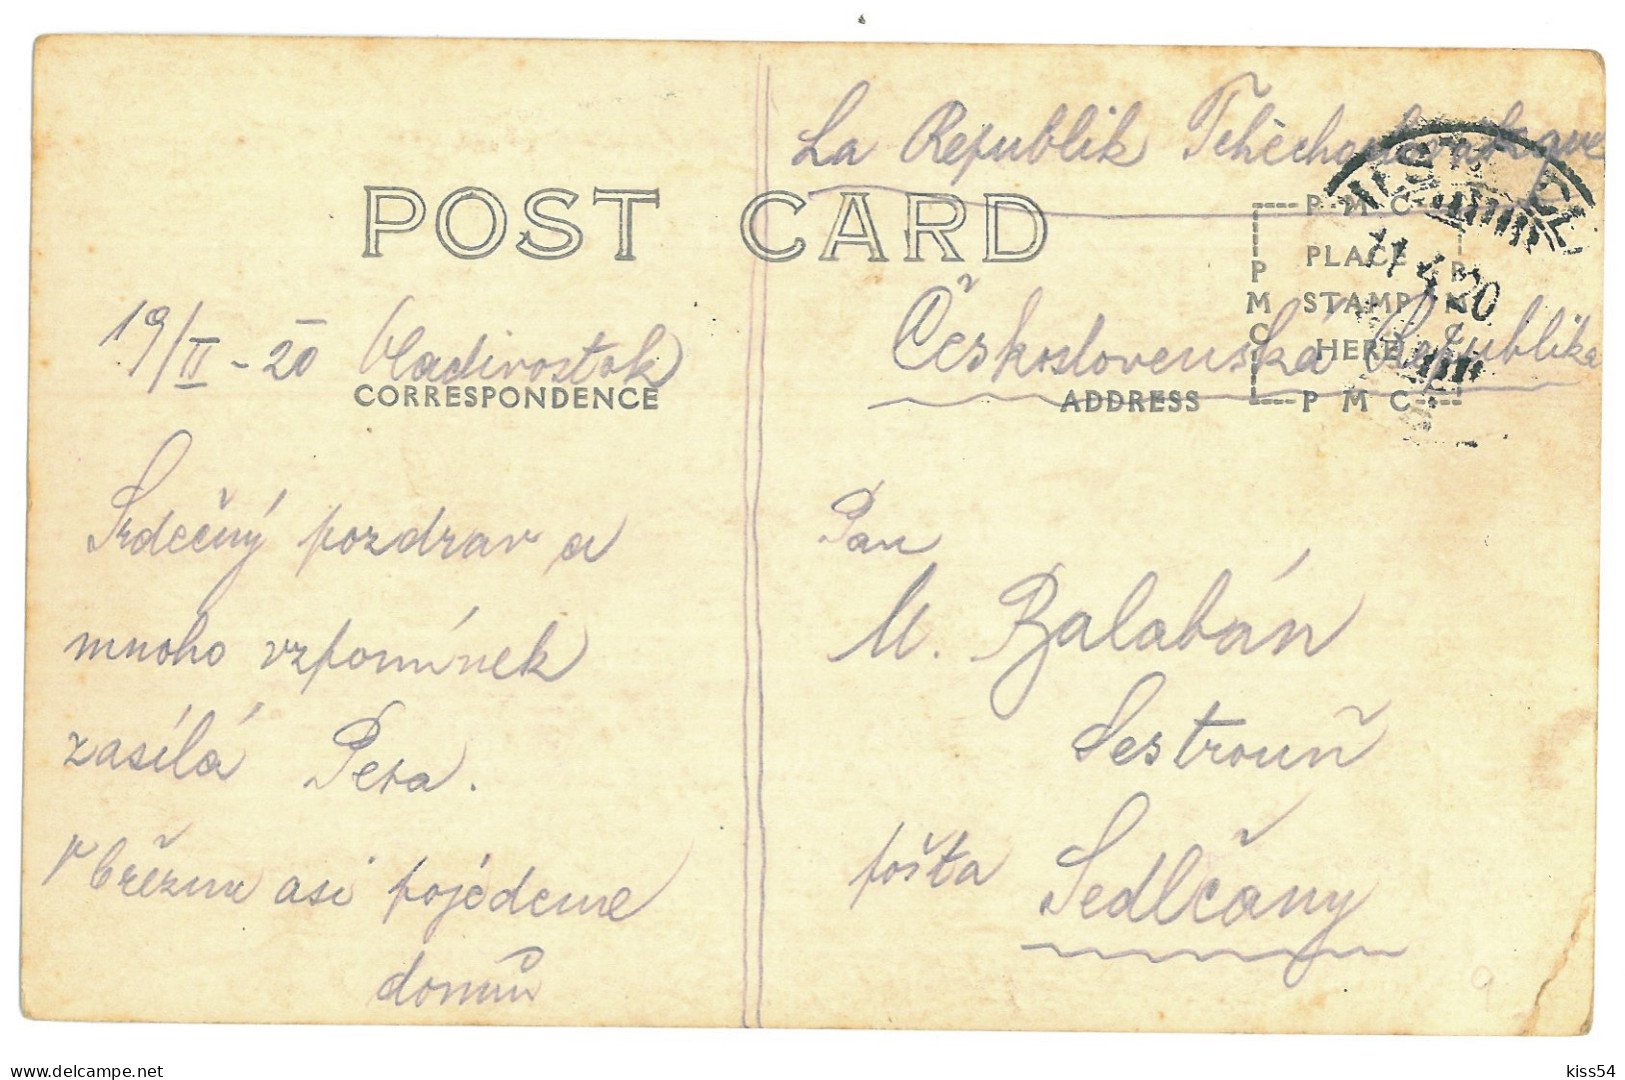 La Republik Tchèchoslovakque
POST CARD
P·M·C
PLACE
STAMP
HERE
P M C
P M C
P M C
11 4 20
19/II - 20 Vladivostok
CORRESPONDENCE
Československá Republika
ADDRESS
Srdečný pozdrav a
mnoho vzpomínek
zasílá Pepa.
V březnu asi pojédeme
domů
Pan
M. Balabán
Sestrouň
pošta Sedlčany
9
delcampe.net
kiss54